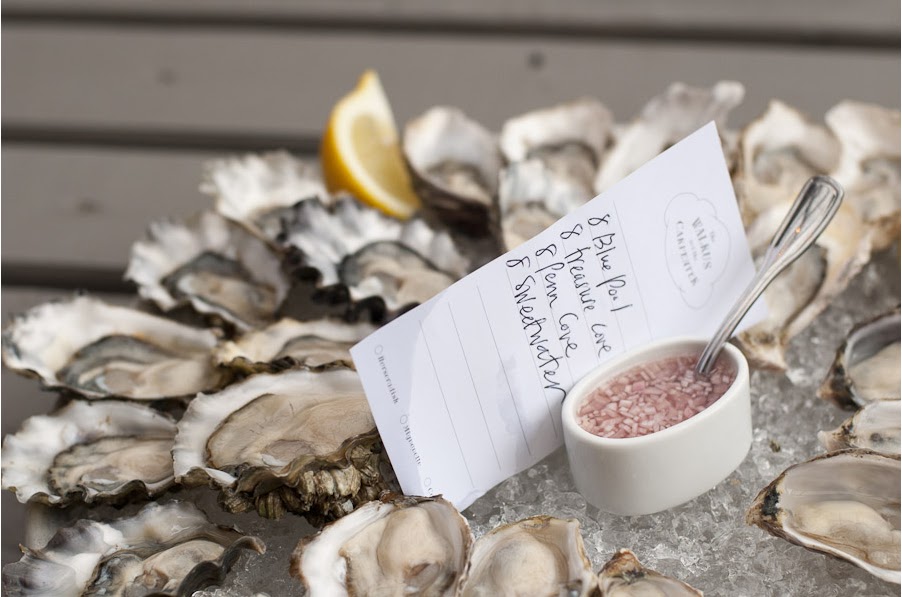 the
WALRUS
and the
CARPENTER
8 Blue Pool
8 treasure cove
8 Penn Cove
8 Sweetwater
Horseradish
Mignonette